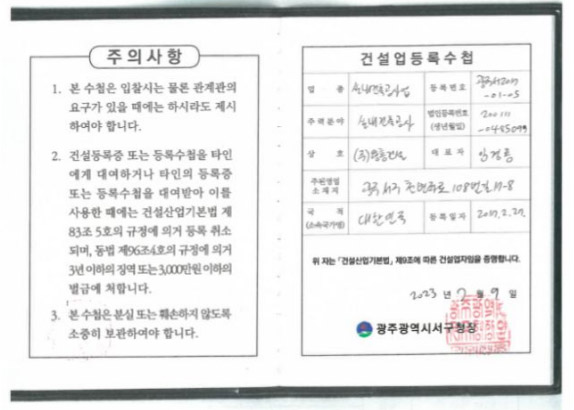 주의사항
1. 본 수첩은 입찰시는 물론 관계관의
요구가 있을 때에는 하시라도 제시
하여야 합니다.
2. 건설등록증 또는 등록수첩을 타인
에게 대여하거나 타인의 등록증
또는 등록수첩을 대여받아 이를
사용한 때에는 건설산업기본법 제
83조 5호의 규정에 의거 등록 취소
되며, 동법 제96조4호의 규정에 의거
3년 이하의 징역 또는 3,000만원 이하의
벌금에 처합니다.
3. 본 수첩은 분실 또는 훼손하지 않도록
소중히 보관하여야 합니다.
건설업등록수첩
업 종 실내건축공사업 등록번호 광주서2017
-01-05
주력분야 실내건축공사 법인등록번호 200111
(생년월일) -0485099
상 호 대표자
주된영업
소재지 광주 서구 108번길 17-8
국 적
(소속국가명) 대한민국 등록일자 2017. 2. 27.
위 자는 「건설산업기본법」 제9조에 따른 건설업자임을 증명합니다.
2023 년 2 월 9 일
광주광역시서구청장